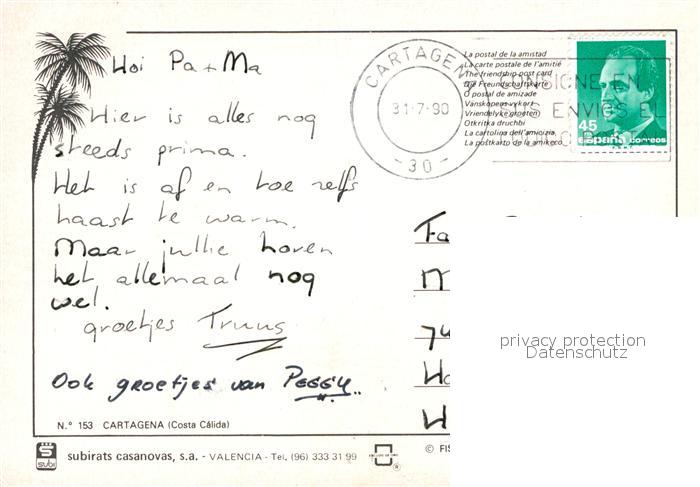 Hoi Pa + Ma
Hier is alles nog
steeds prima.
Het is af en toe zelfs
haast te warm.
Maar jullie horen
het allemaal nog
wel.
groetjes Truus
Ook groetjes van PEGGY
N.º 153 CARTAGENA (Costa Cálida)
subi
subirats casanovas, s.a. - VALENCIA - Tel, (96) 333 31 99
© FIS
CARTAGEN
31-7-90
- 30 -
La postal de la amistad
La carte postale de l'amitié
The friendship post card
Die Freundschaftskarte
O postal de amizade
Vanskopens vykort
Vriendelyke groeten
Otkritka druchbi
La cartolina dell'amicizia
La postkarto de la amikeco
CONSIGNE EN
SUS ENVIOS EL
45
españa correos
Fa
M
74
Ho
H
privacy protection
Datenschutz